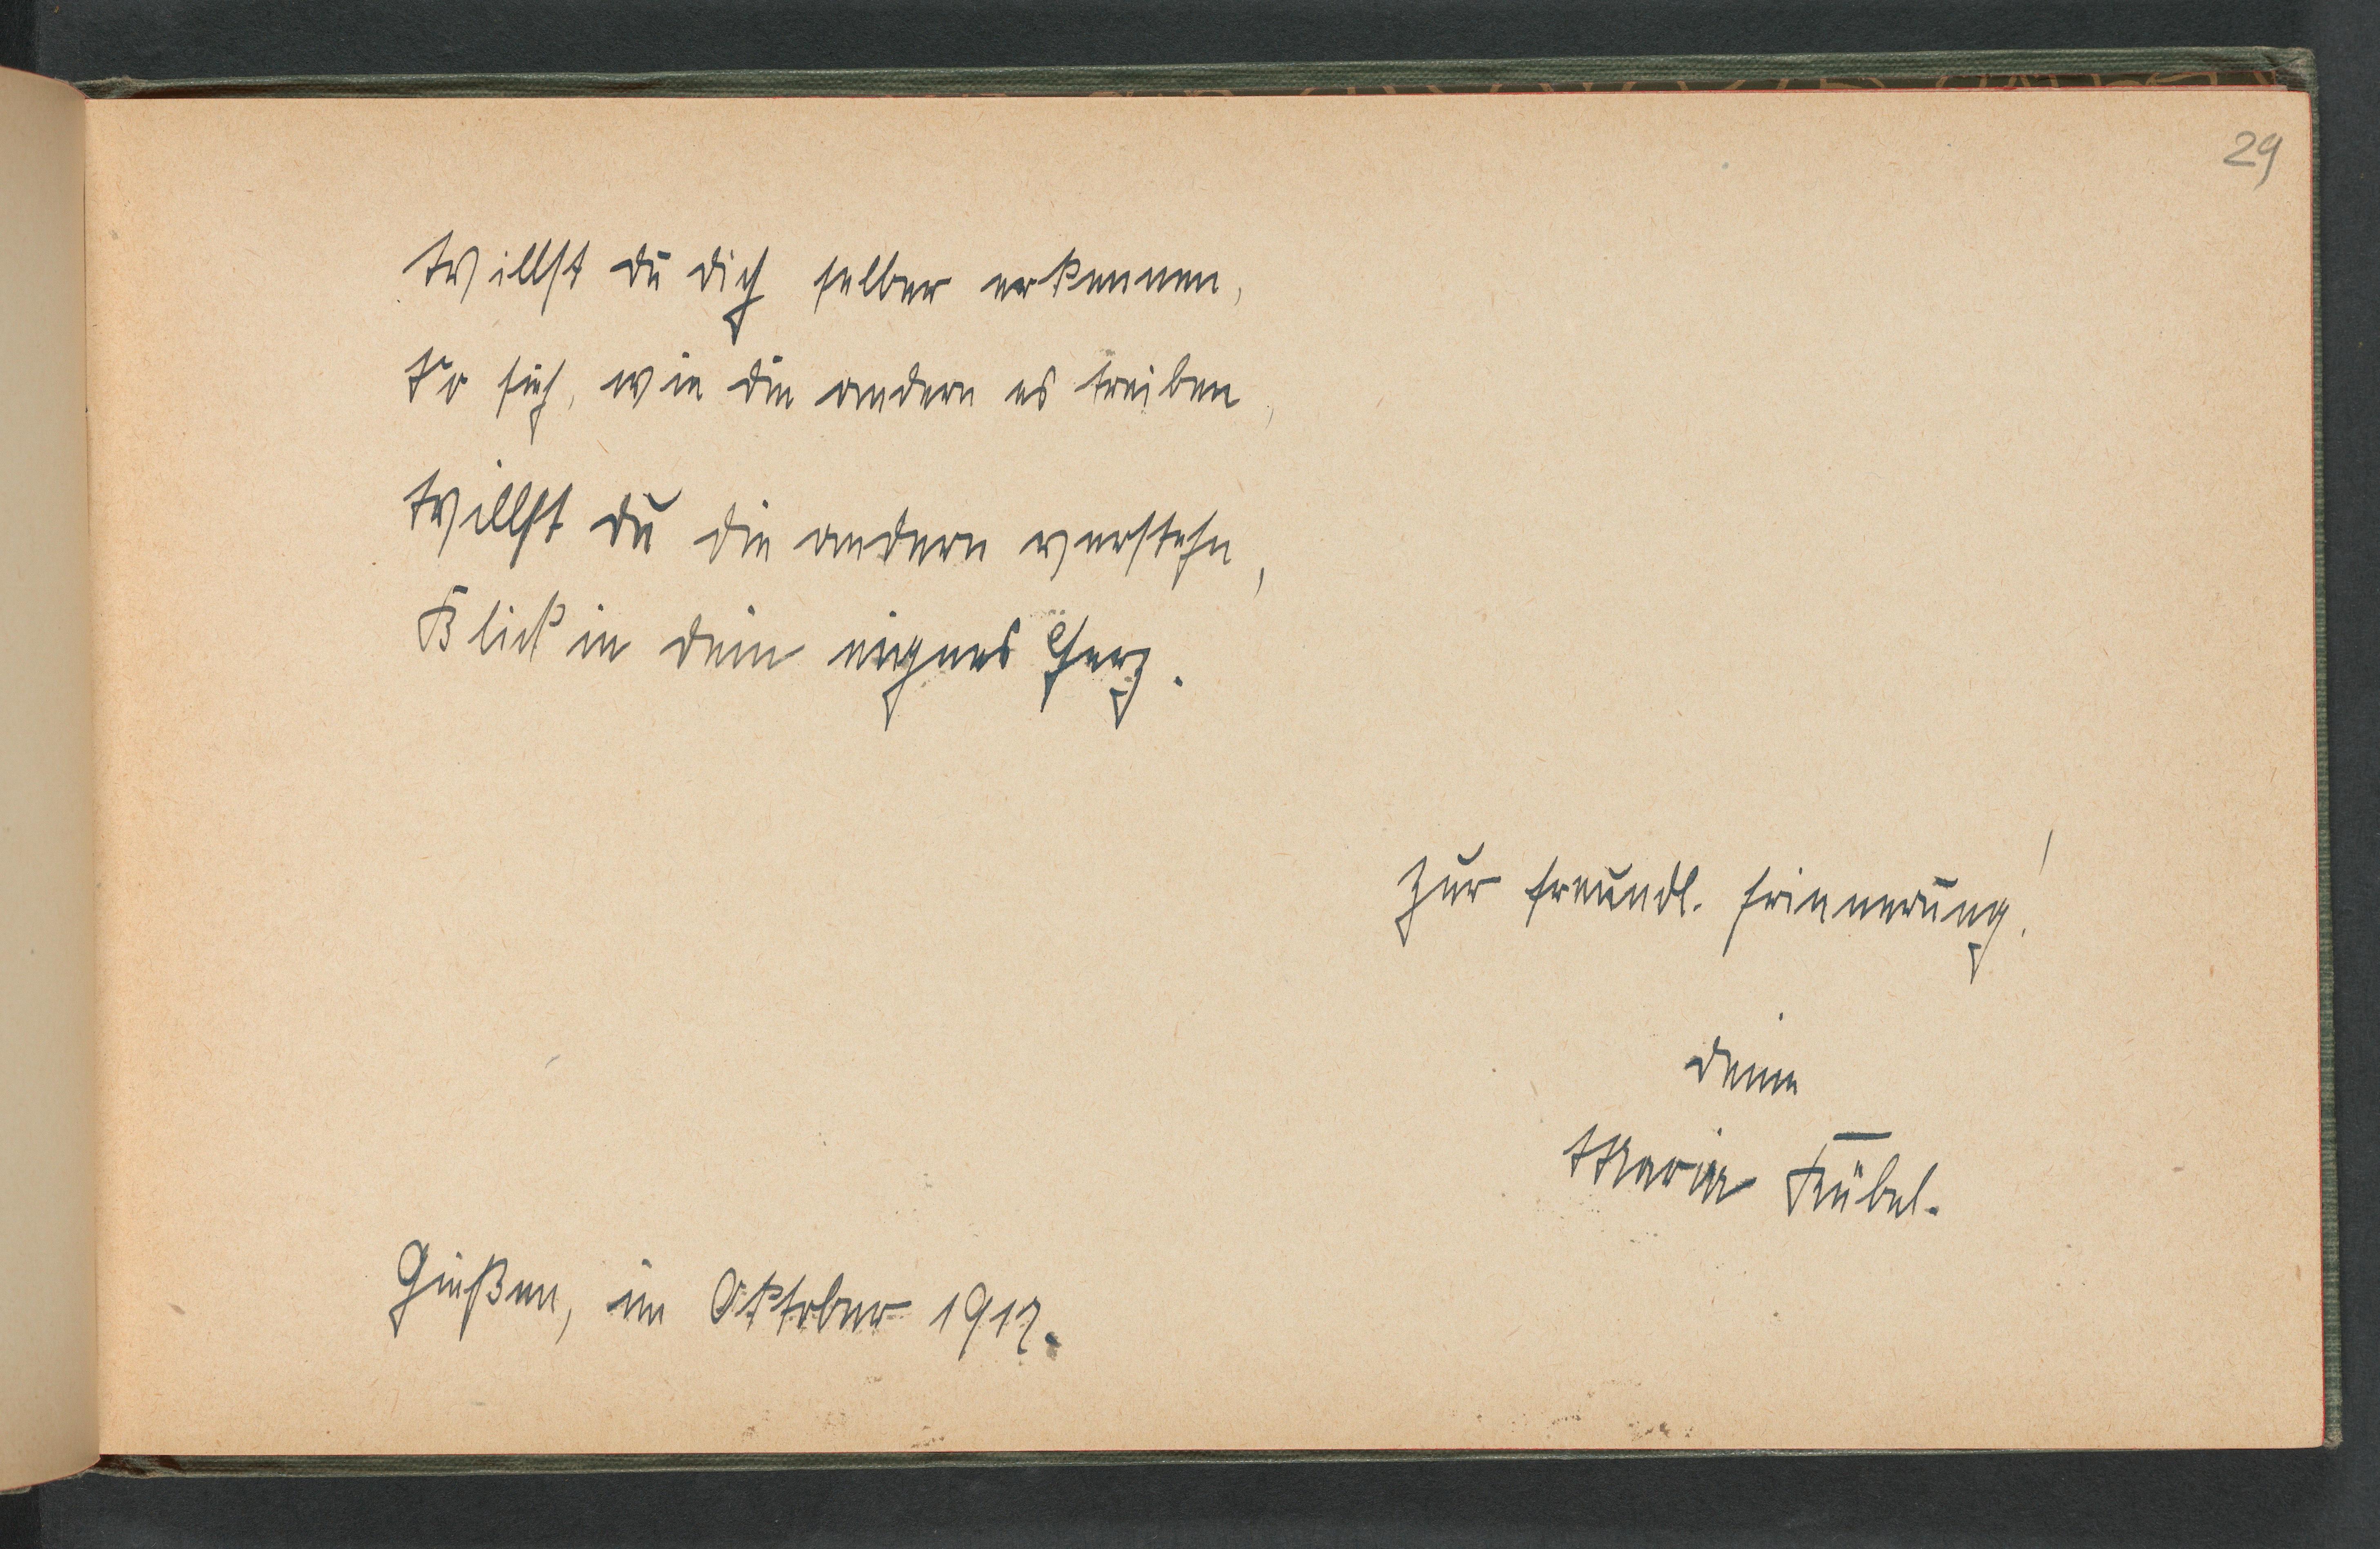 29
Willst du dich selber erkennen,
So sieh, wie die andern es treiben,
Willst du die andern verstehn,
Blick in dein eignes Herz.
Zur freundl. Erinnerung!
deine
Maria
Gießen, im Oktober 1917.